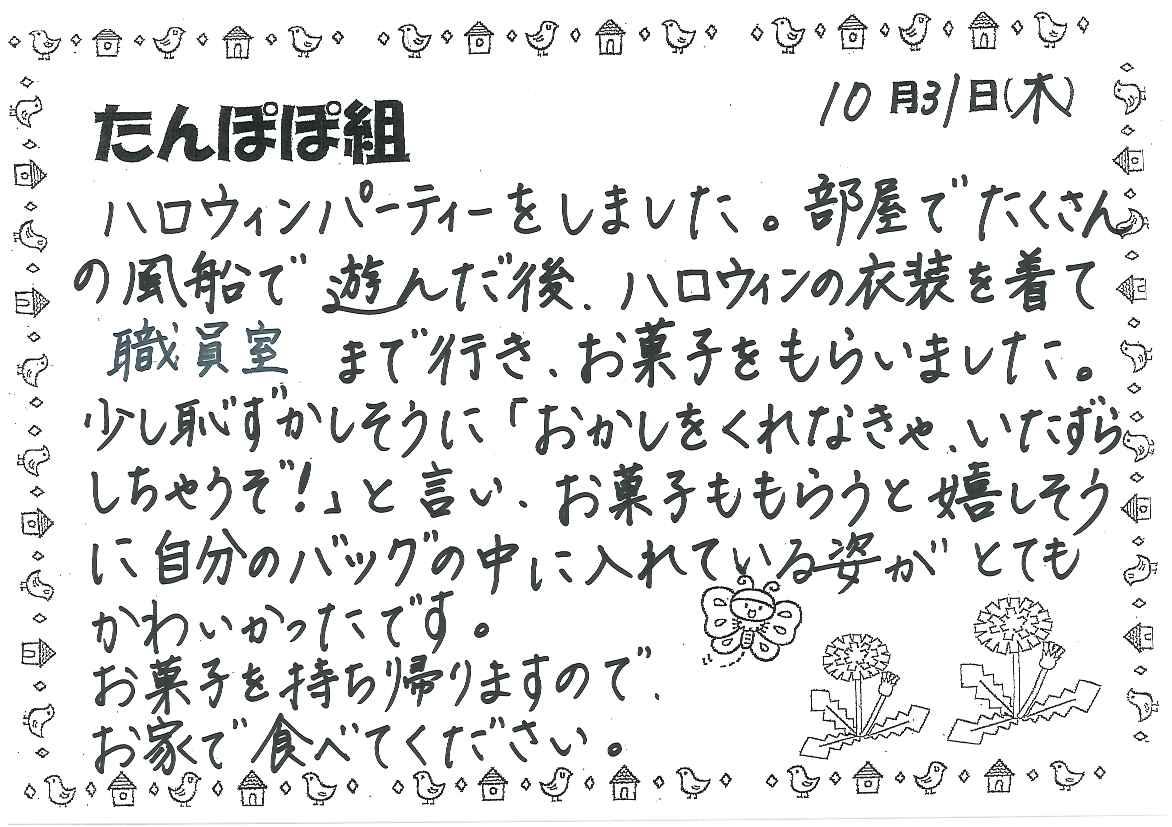 10月31日(木)
たんぽぽ組
ハロウィンパーティーをしました。部屋でたくさん
の風船で遊んだ後、ハロウィンの衣装を着て
職員室まで行き、お菓子をもらいました。
少し恥ずかしそうに「おかしをくれなきゃ、いたずら
しちゃうぞ!」と言い、お菓子ももらうと嬉しそう
に自分のバッグの中に入れている姿がとても
かわいかったです。
お菓子を持ち帰りますので、
お家で食べてください。